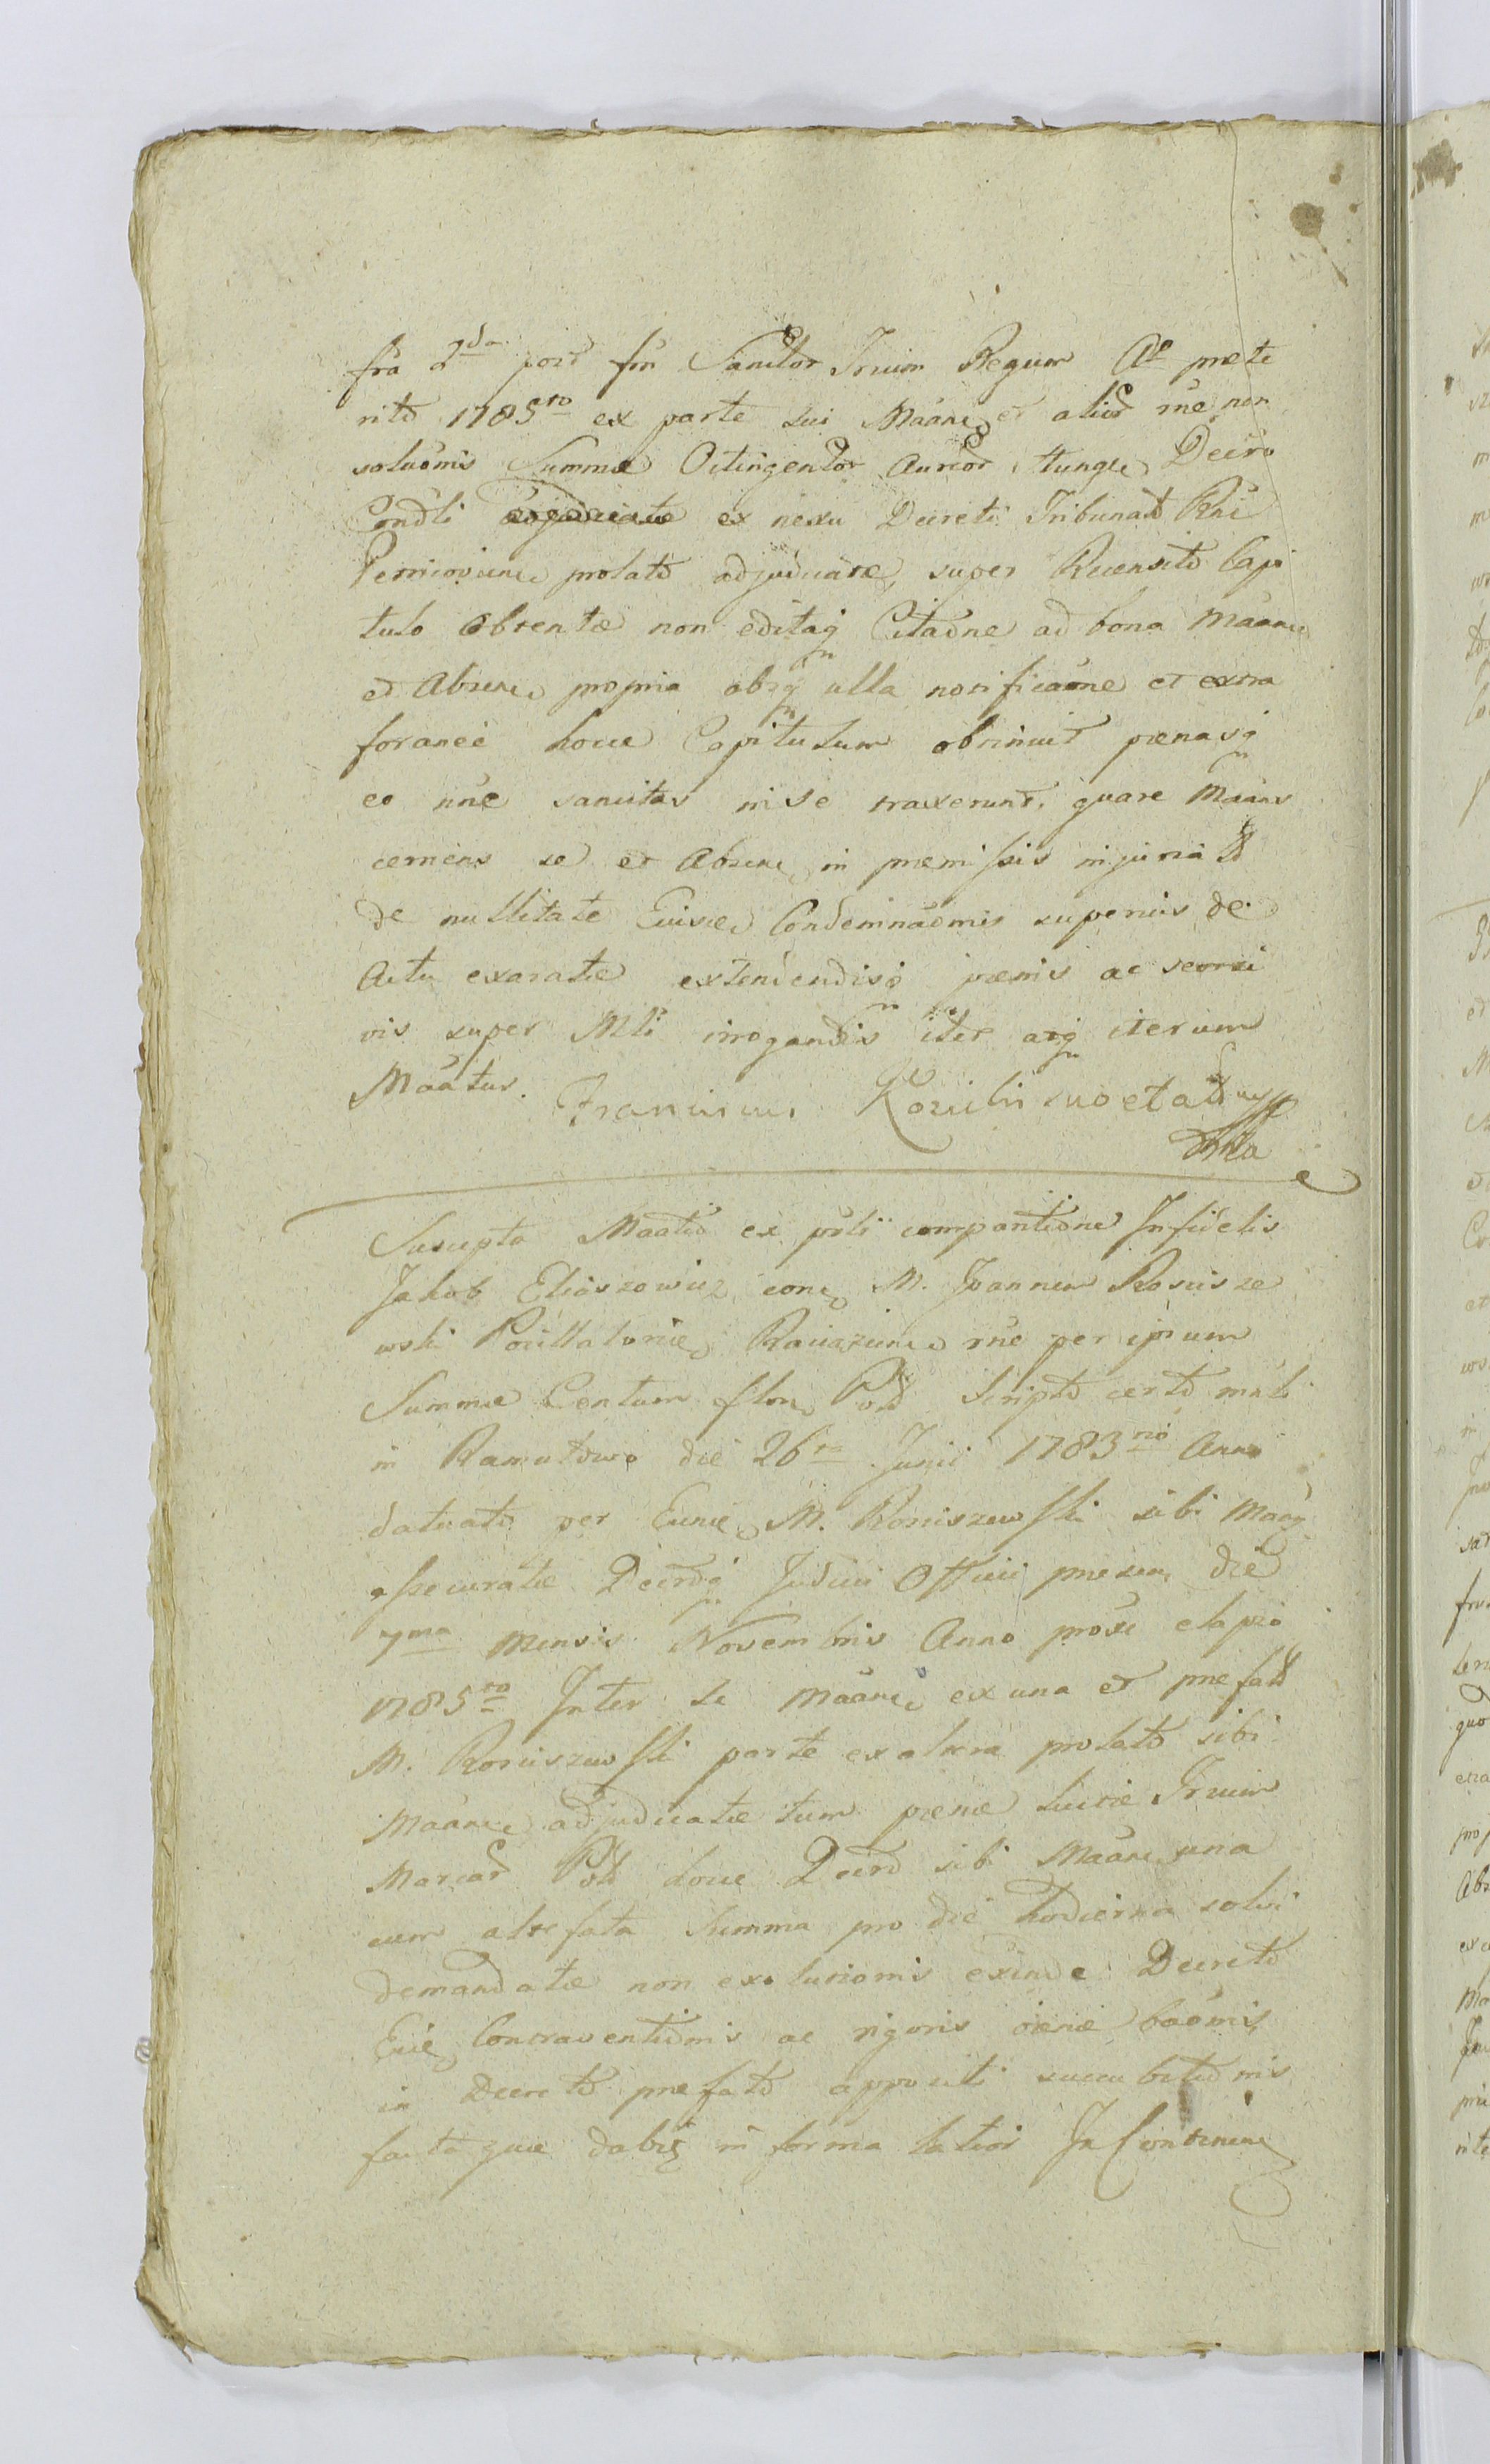 fra 2da post fm Sanctor Trium Regum Ao prete
rito 1785to ex parte sui Maane et alior rne non
soluonis Summæ Octingentor Aureor Hungc Decro
Condli adjudicatæ ex nexu Decreti Tribunal Rni
prolato adjudicatæ, super Recensito Capi
tulo obtentæ non editaq Citaone ad bona Maane
et Absene propria absq ulla notificaone et extra
foranee hocce Capitulum obtinuit pænasq
eo nne sancitas in se traxerunt, quare Maans
cernens se et Absene in præmissis injuriad
de nullitate Condemnaonis superius de
Actu exaratæ extendendisq pænis ac
vis super Mli irrogandis itde atq iterum
Maatus. Franciscus

Suscepta Maatio ex pslì comparitione Infidelis
Jakob Eliaszowicz conq M. Joannem Roscisze
wski Raciazene rne per ipsum
Summæ Centum flor Pol Scripto certo
in Ramutowo die 26ta Junii 1783tio Anno
datuato per M. Rosciszewski sibi Maaq
assecuratæ Decroq Judicii Officii presen die
7ma mensis Novembris Anno proxe elapso
1785to Inter se Maane ex una et præfatt
M. Rosciszewski parte ex altera prolato sibi
Maane adjudicatæ tum pænæ luitæ Trium
Marcar Pol docce Decro sibi Maane una
cum altefata Summa pro die hodierna solvi
demandatæ non exolutionis exinde Decreto
Contraventionis ac rigoris
in Decreto præfato appositi succubitionis
facta quæ dabit in forma latiori In Continene